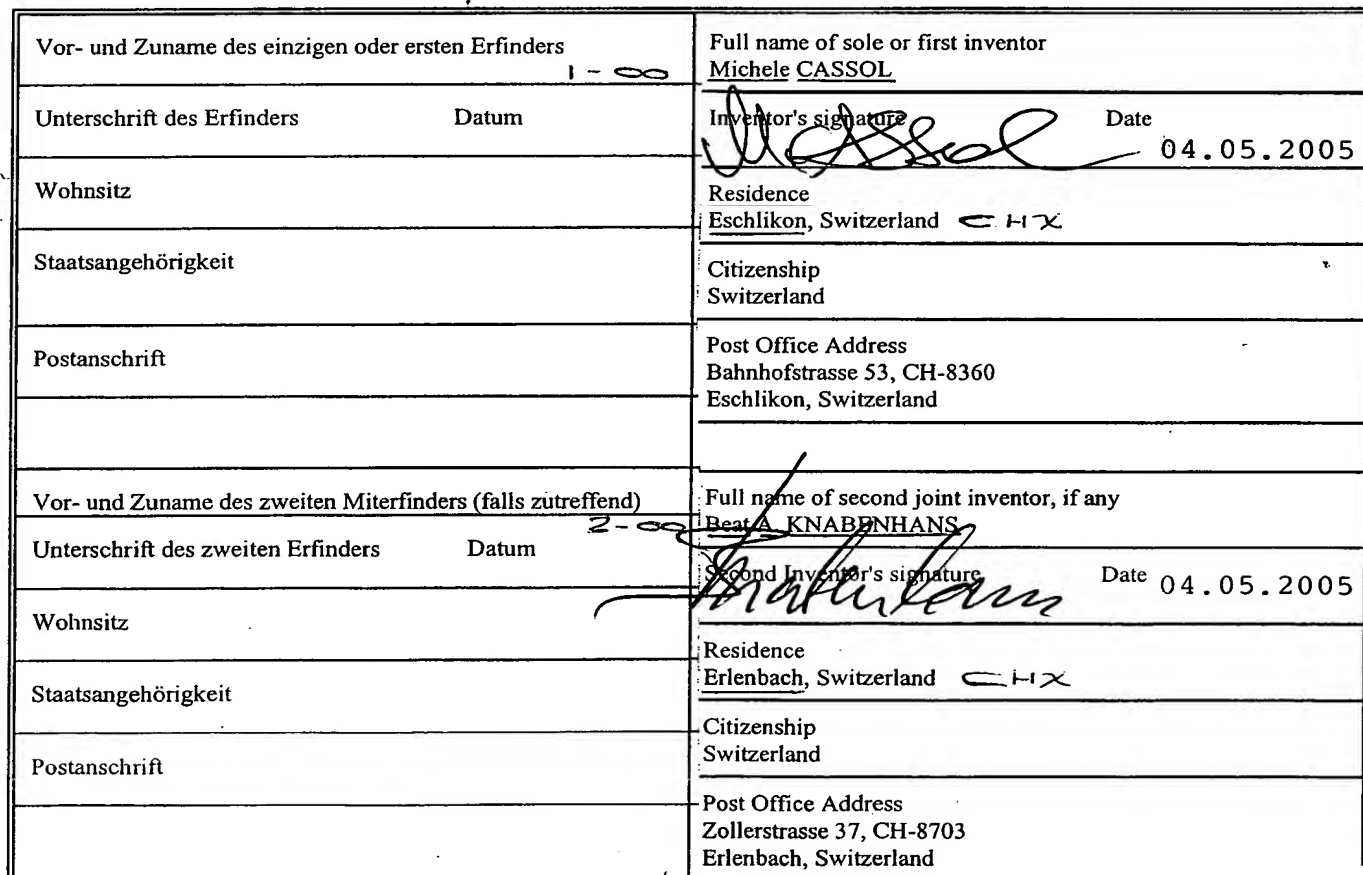 Vor- und Zuname des einzigen oder ersten Erfinders
1-00
Full name of sole or first inventor
Michele CASSOL
Unterschrift des Erfinders Datum
Inventor's signature Date
04.05.2005
Wohnsitz
Residence
Eschlikon, Switzerland CHX
Staatsangehörigkeit
Citizenship
Switzerland
Postanschrift
Post Office Address
Bahnhofstrasse 53, CH-8360
Eschlikon, Switzerland
Vor- und Zuname des zweiten Miterfinders (falls zutreffend)
2-00
Full name of second joint inventor, if any
Beat A. KNABENHANS
Unterschrift des zweiten Erfinders Datum
Second Inventor's signature Date 04.05.2005
Wohnsitz
Residence
Erlenbach, Switzerland CHX
Staatsangehörigkeit
Citizenship
Switzerland
Postanschrift
Post Office Address
Zollerstrasse 37, CH-8703
Erlenbach, Switzerland